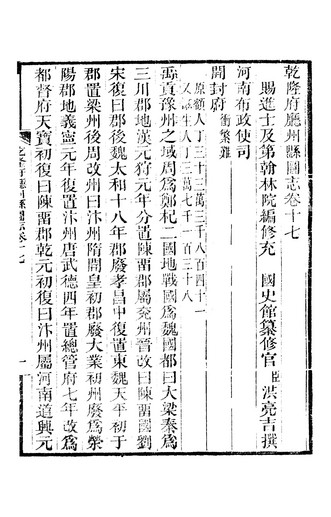 乾隆府廳州縣圖志卷十七
賜進士及第翰林院編修充　國史館纂修官臣洪亮吉撰
河南布政使司
開封府衝繁難
原額人丁三十三萬三千八百四十一
又滋生人丁三萬七千一百三十八
禹貢豫州之域周為鄭杞二國地戰國為魏國都曰大梁秦為
三川郡地漢元狩元年分置陳畱郡屬兖州晉改曰陳畱國劉
宋復曰郡後魏太和十八年郡廢孝昌中復置東魏天平初于
郡置梁州後周改州曰汴州隋開皇初郡廢大業初州廢為榮
陽郡地義寧元年復置汴州唐武德四年置總管府七年改為
都督府天寶初復曰陳畱郡乾元初復曰汴州屬河南道興元
乾隆府廳州縣圖志卷十七
一